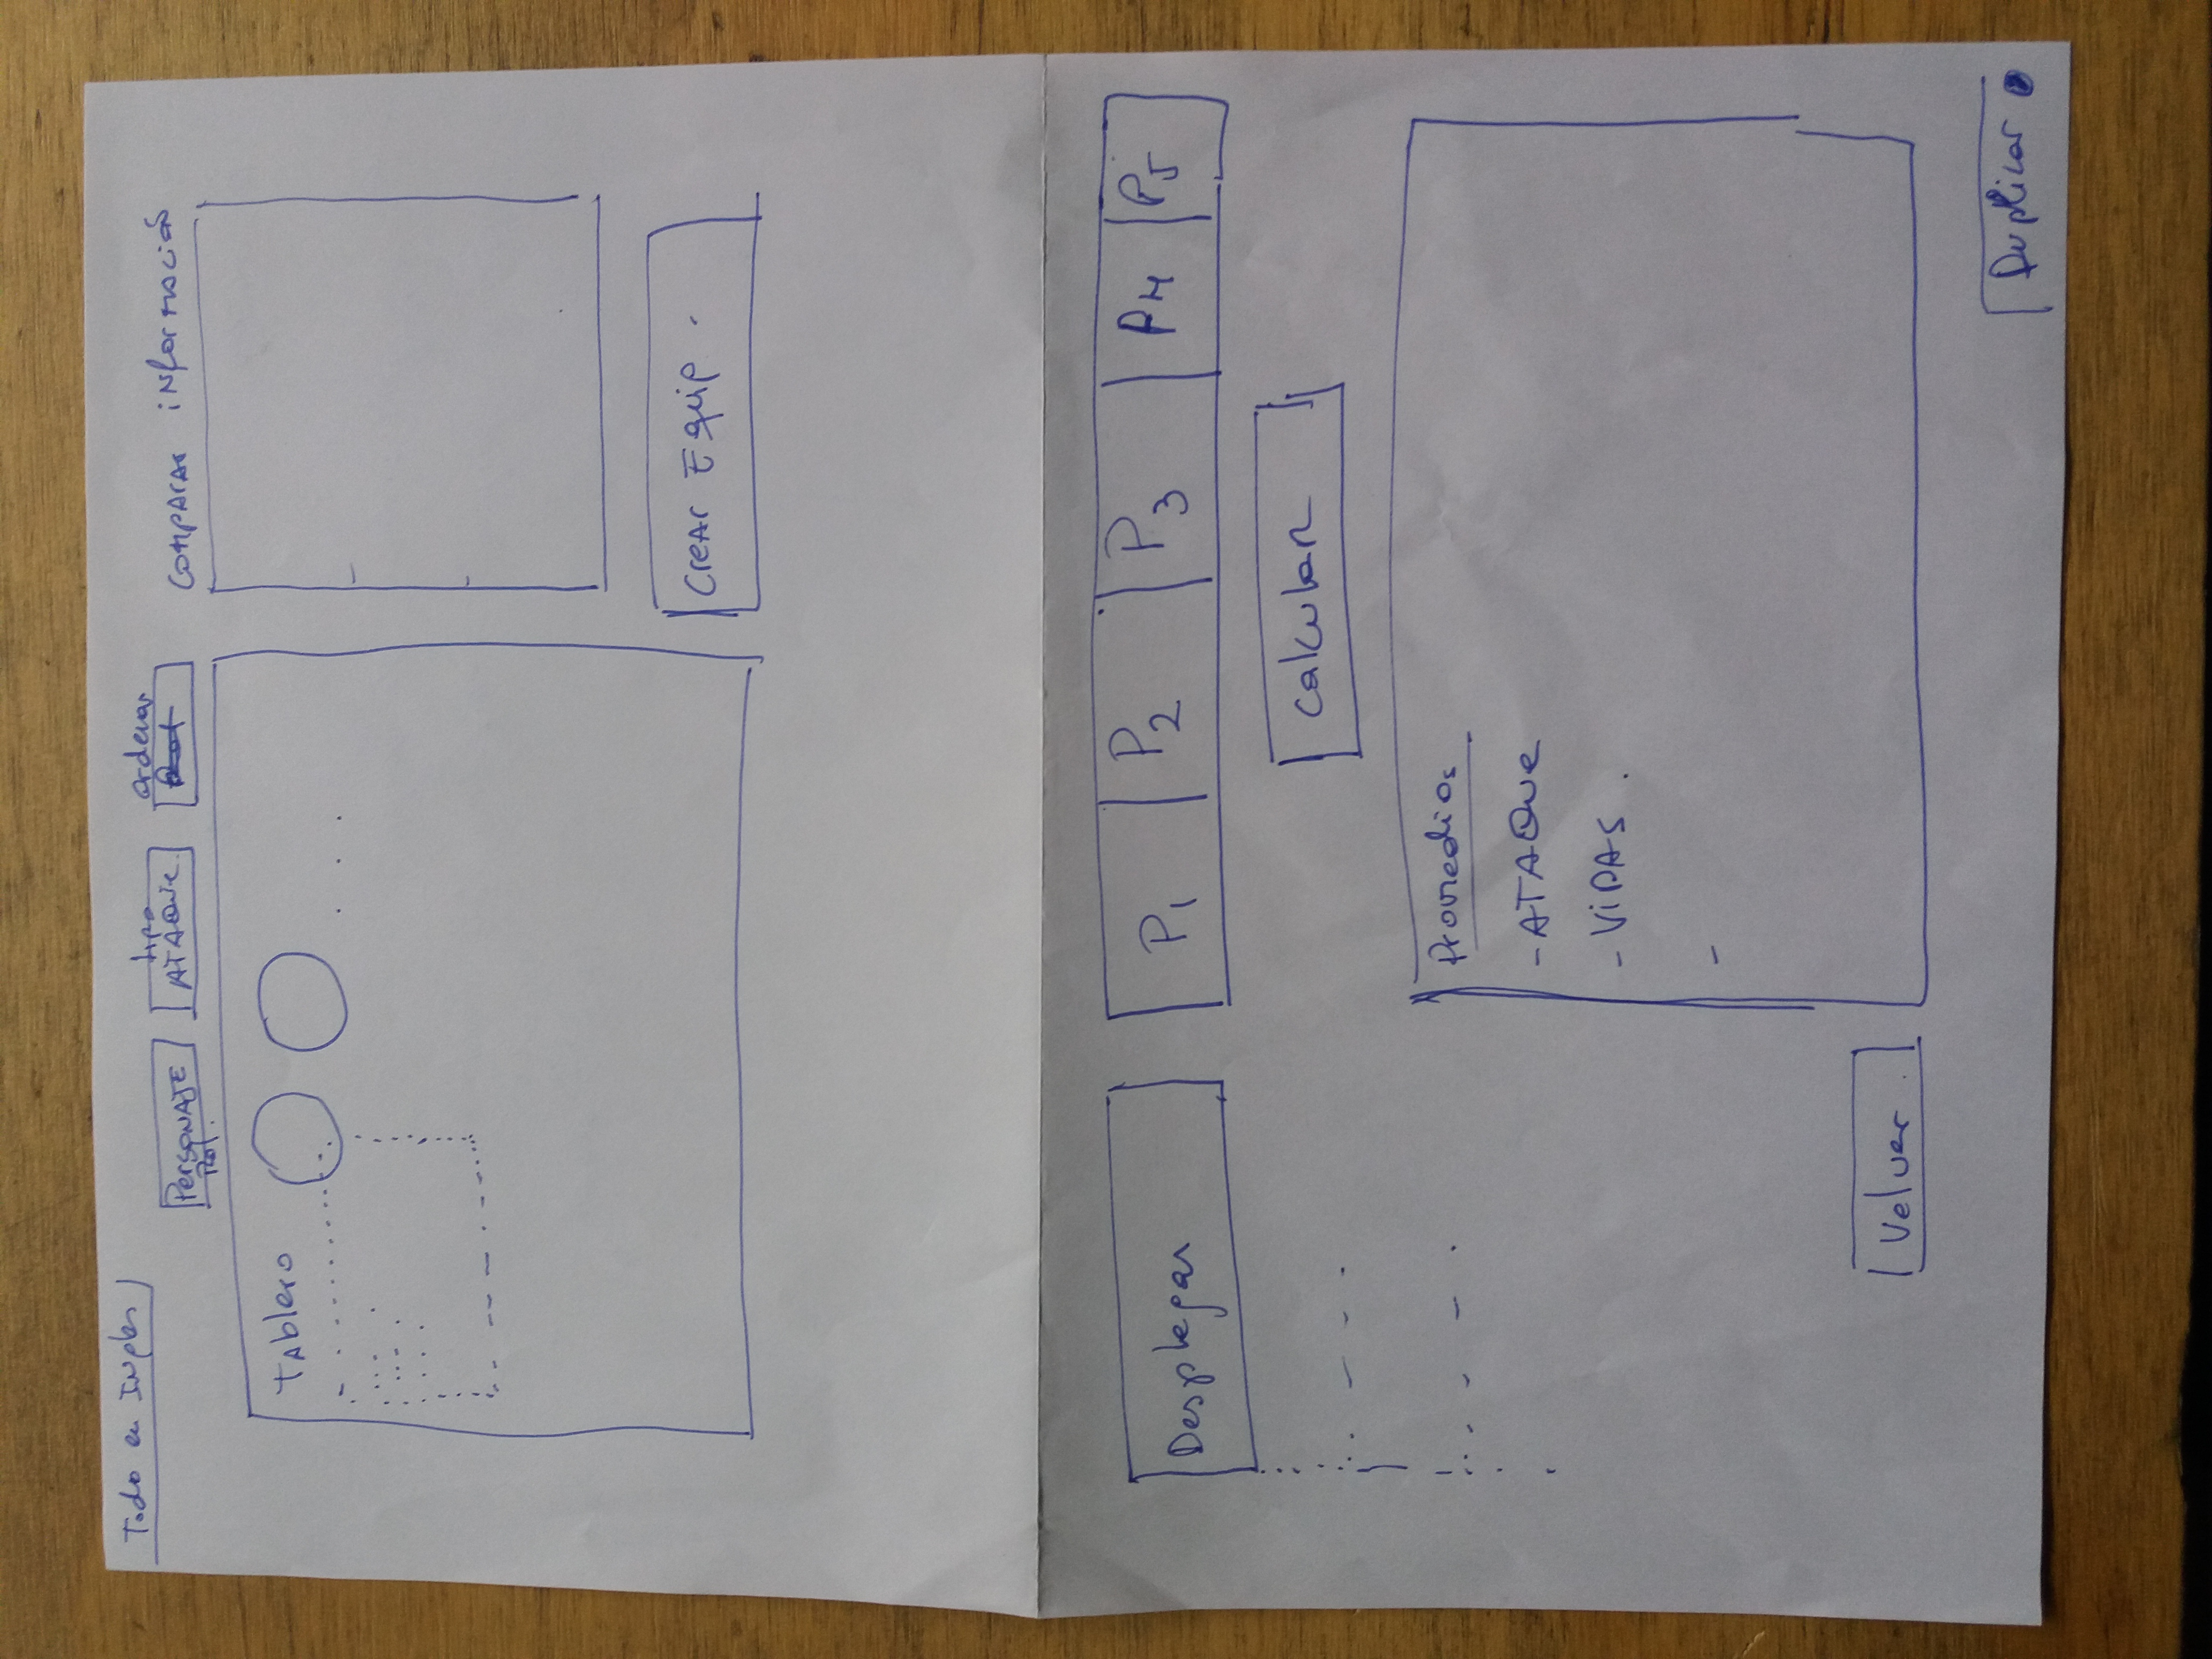 Todo en Ingles
Personaje
Rol.
tipo
ATAQUE
ordenar
comparar información
Tablero
Crear Equip.
Desplegar
P1
P2
P3
P4
P5
Calcular
Promedios
- ATAQue
- ViDAs.
-
Volver.
Duplicar